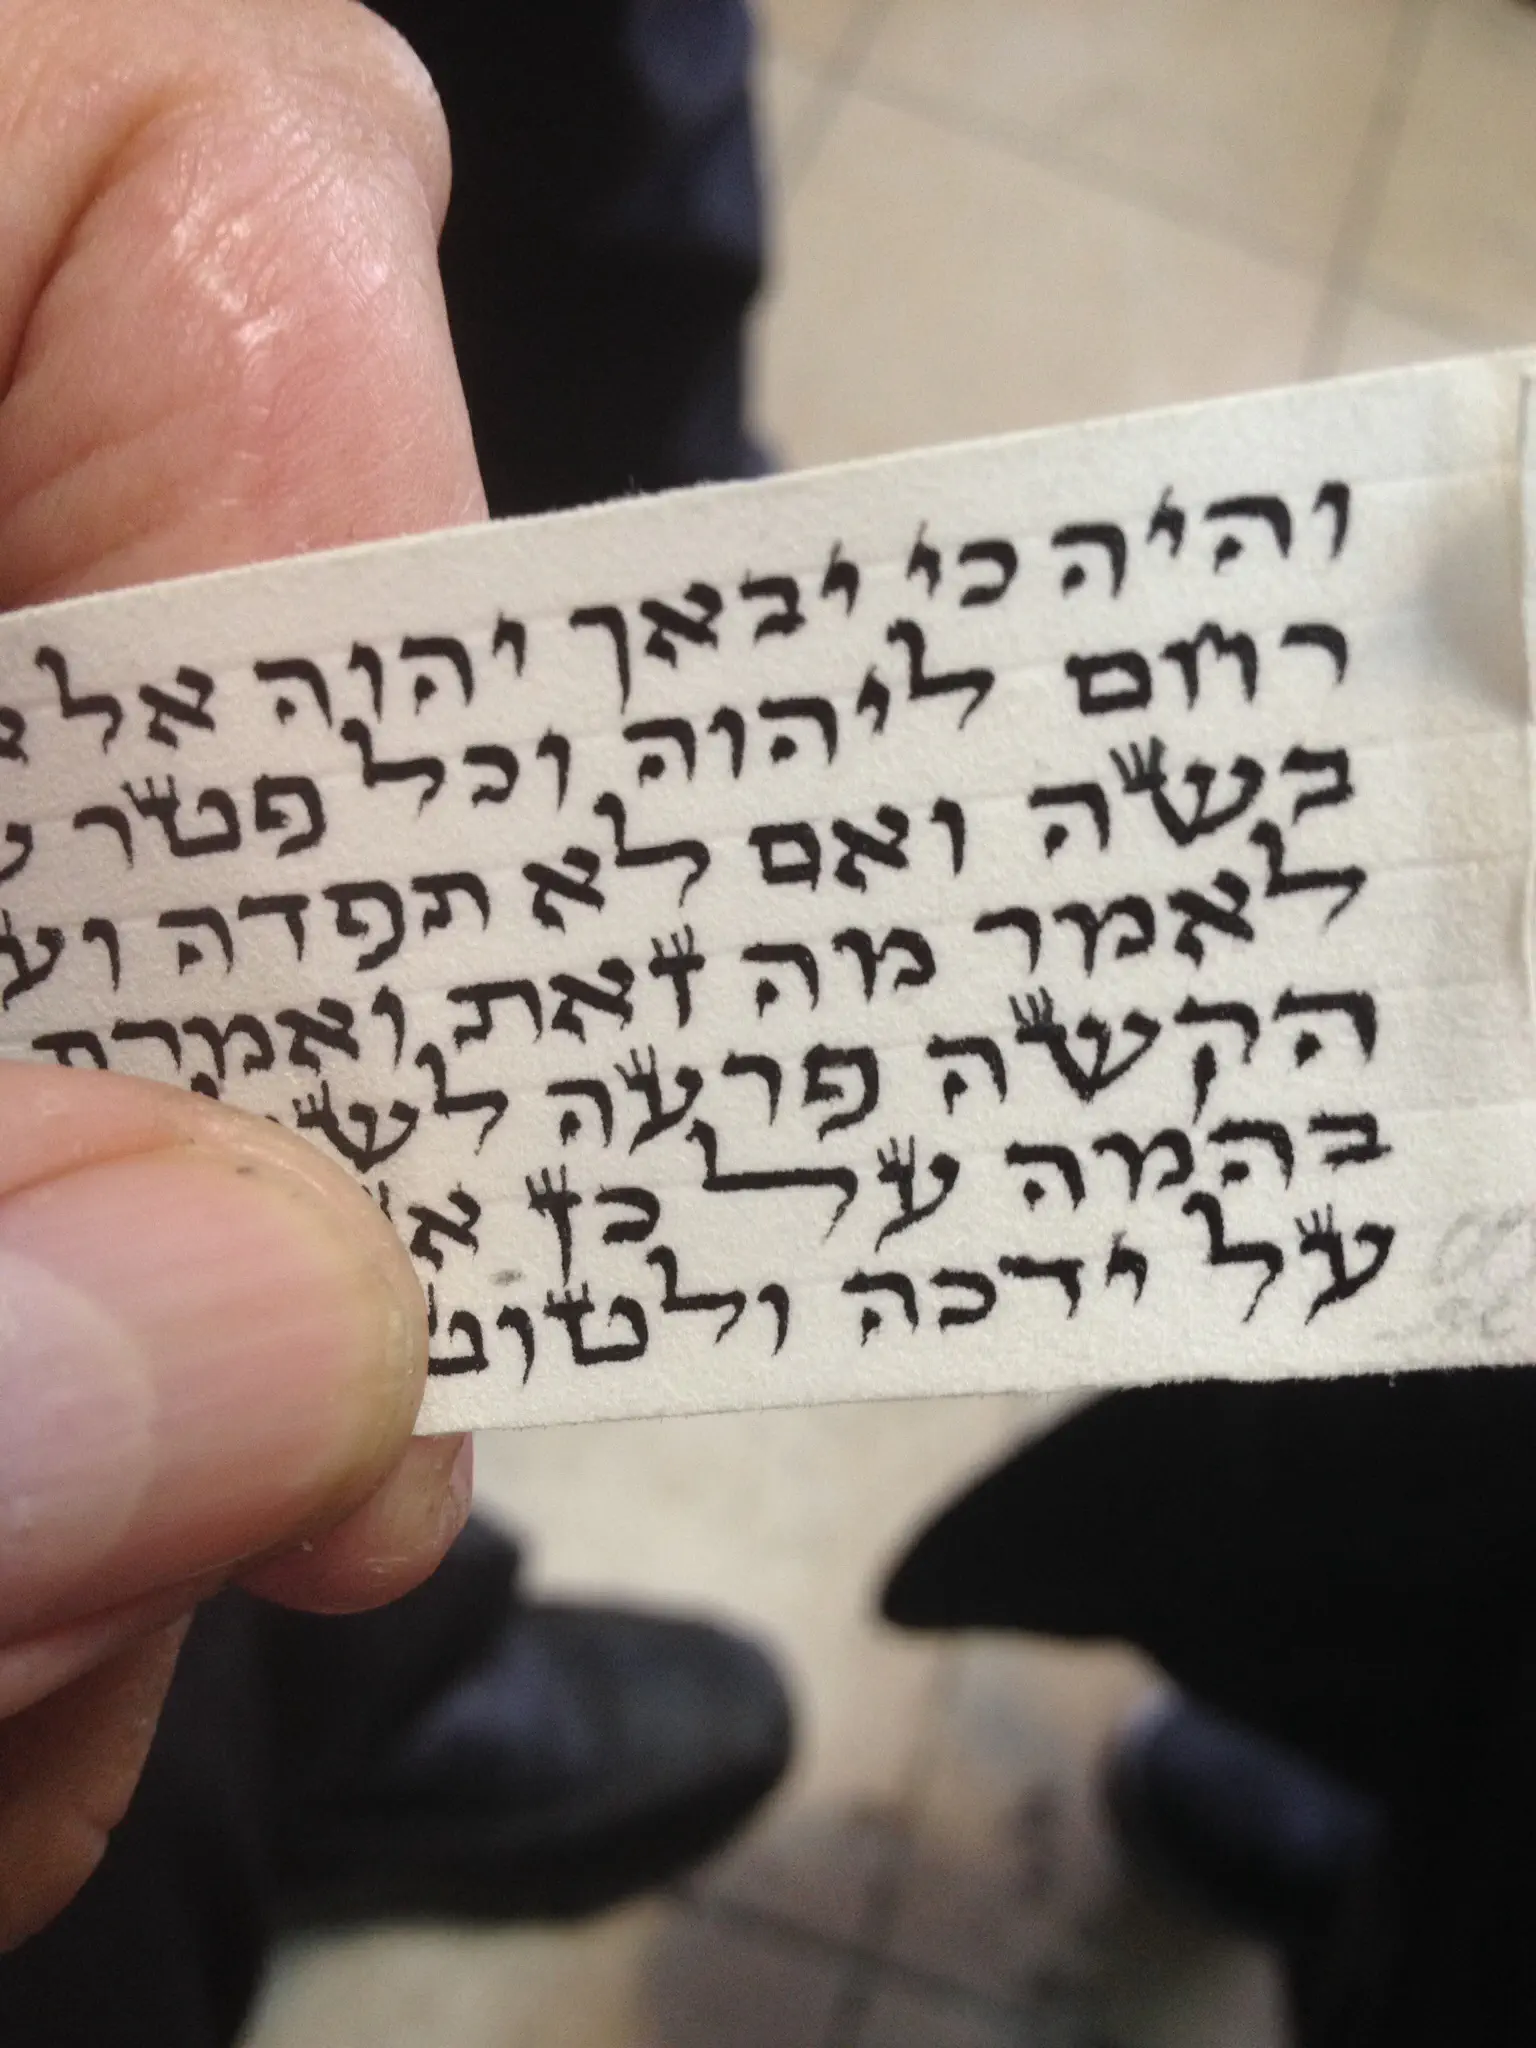 והיה כי יבאך יהוה
רחם ליהוה וכל פטר
בשה ואם לא תפדה
לאמר מה זאת ואמרת
הקשה פרעה
בהמה על כן
על ידכה